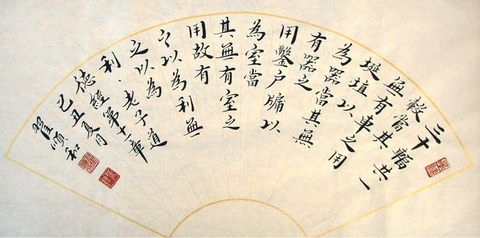 三十輻共一
轂當其
無有車之用
埏埴以
為器當其無
有器之
用鑿戶牖以
為室當
其無有室之
用故有
之以為利無
之以為
利老子道
德經第十一章
己丑夏月
順和